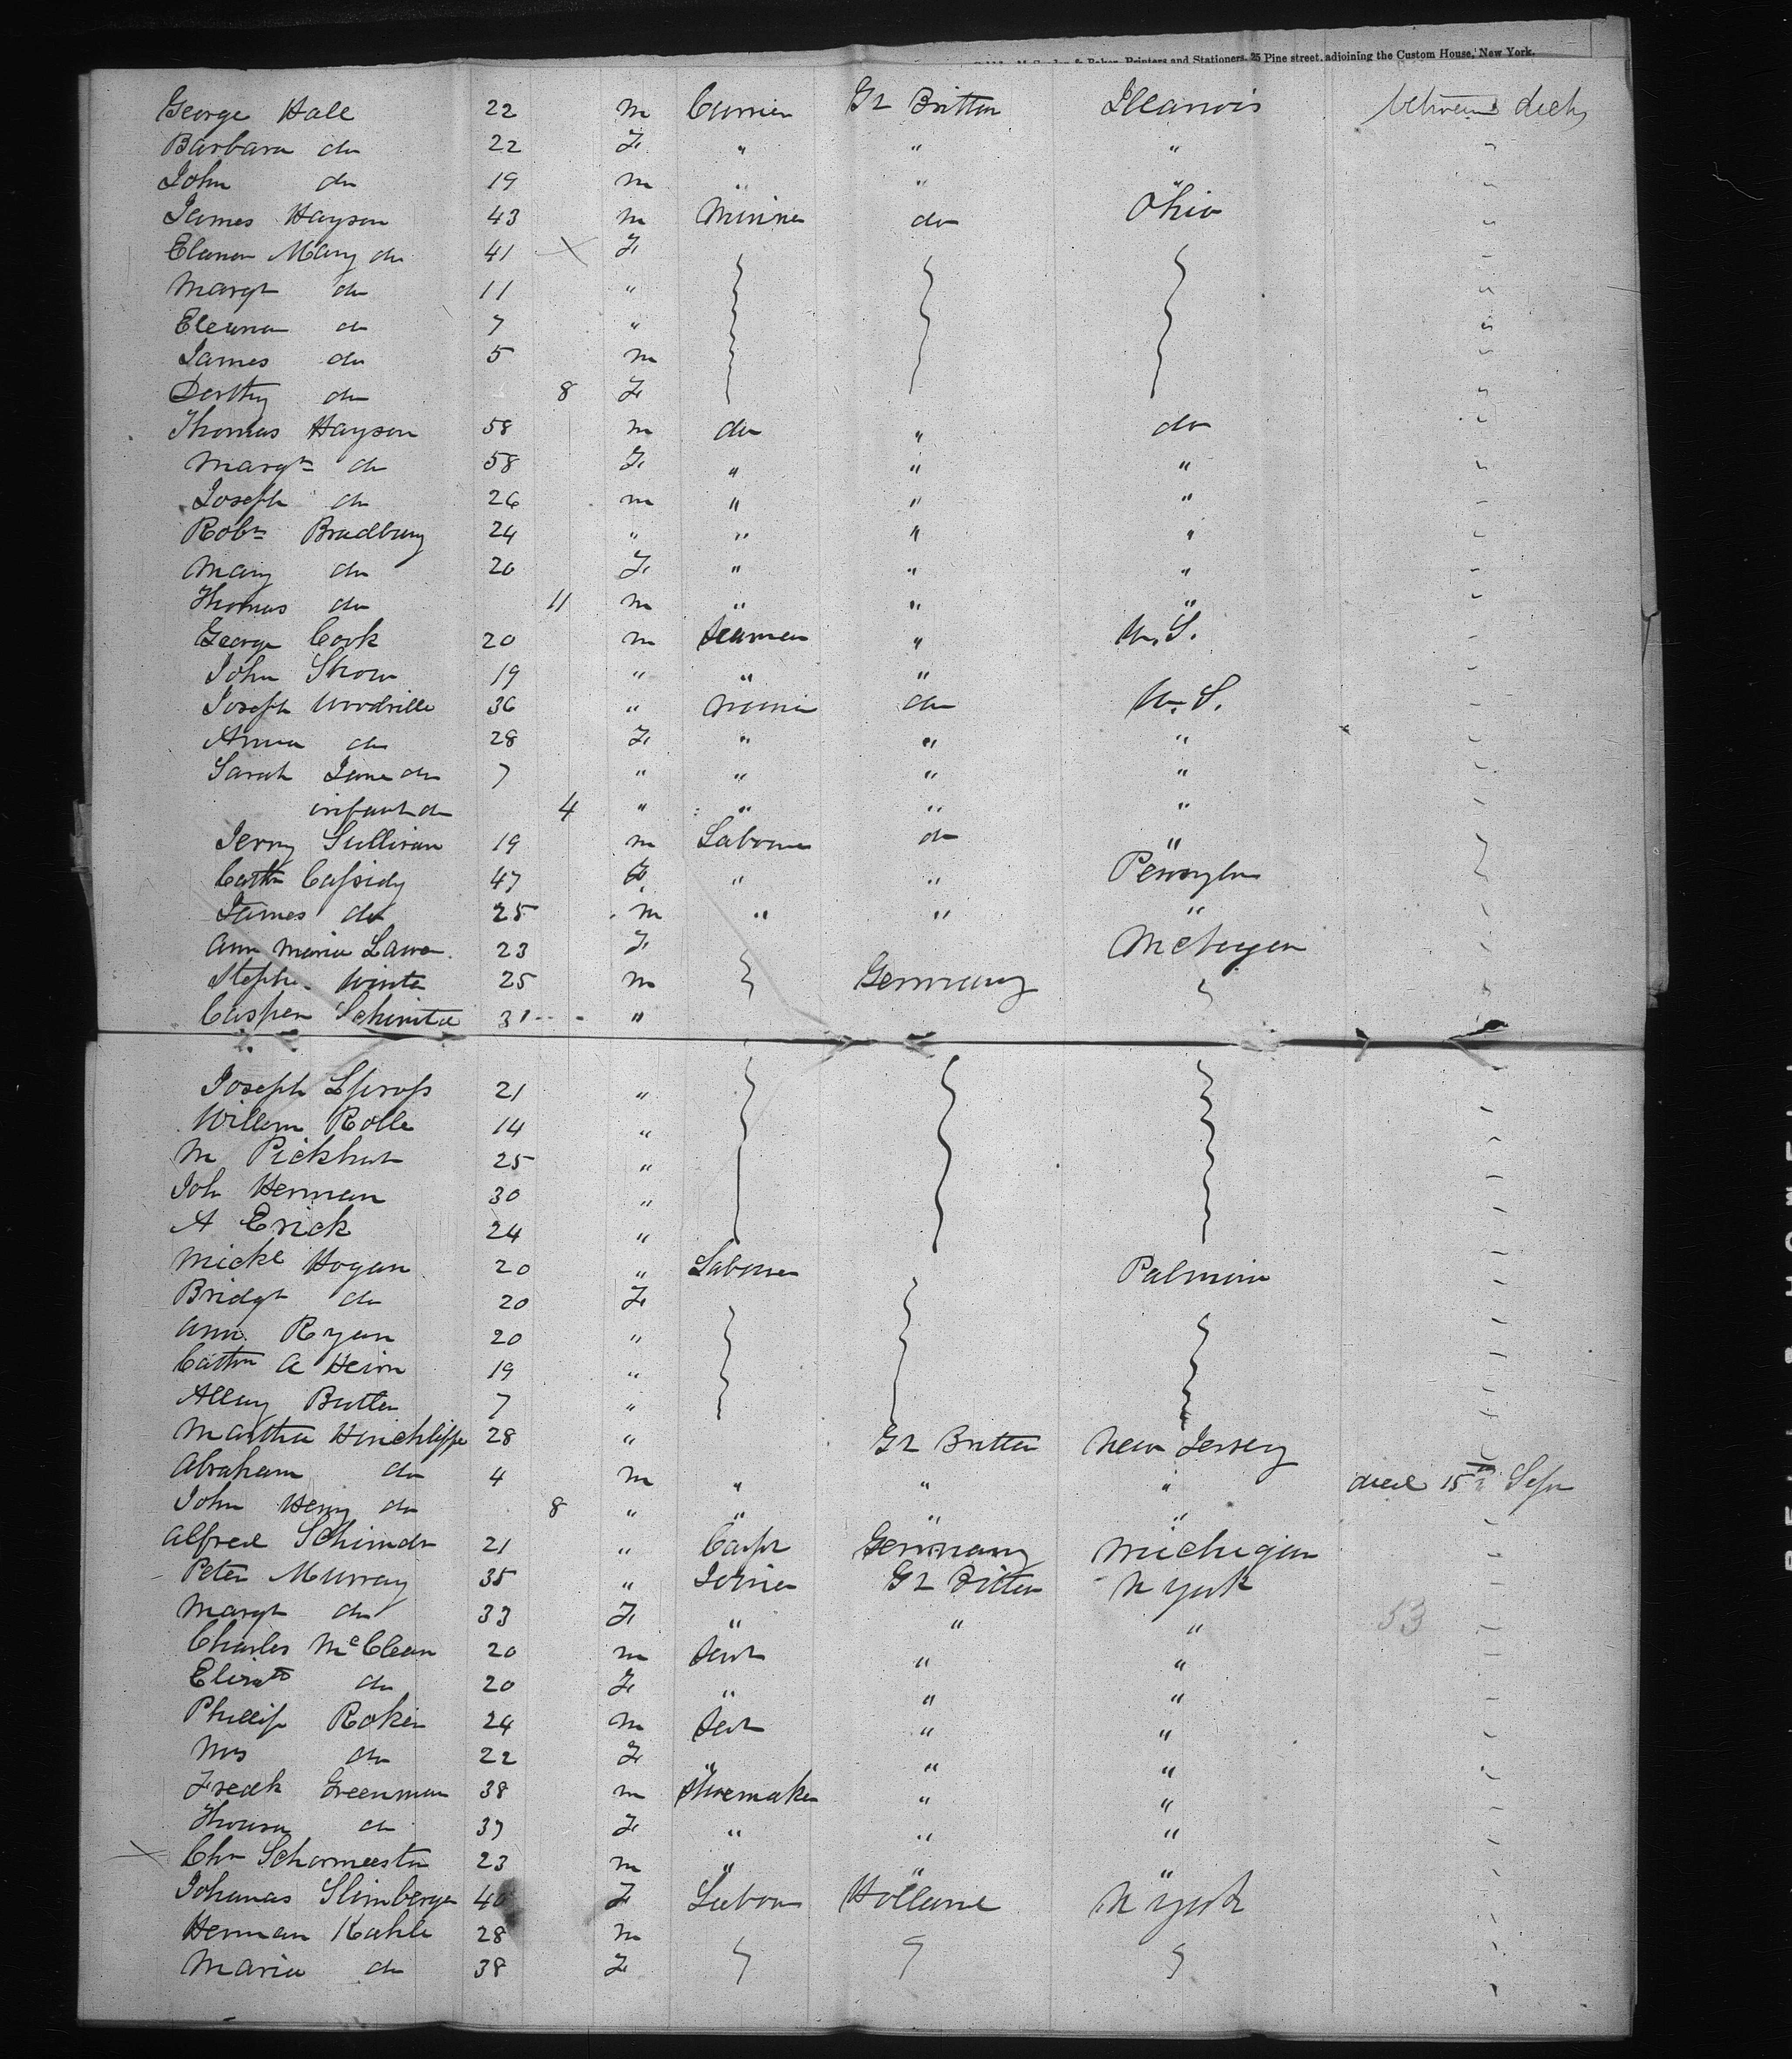 Printers and Stationers, 25 Pine street, adjoining the Custom House, New York.
George Hall 22 m Currier Gt Britten Illanois between decks
Barbara do 22 F " " " "
John do 19 m " " " "
James Hayson 43 m Minner do Ohio "
Elanor Mary do 41 F "
Margt do 11 " "
Eleanor do 7 " "
James do 5 m "
Dorthy do 8 F "
Thomas Hayson 58 m do " do "
Margt do 58 F " " " "
Joseph do 26 m " " "
Robt Bradbury 24 " " " "
Mary do 20 F " " "
Thomas do 11 m " " "
George Cook 20 m Seaman " U.S.
John Show 19 " " "
Joseph Woodville 36 " Minner do U.S.
Anna do 28 F " " "
Sarah Jane do 7 " " " "
infant do 4 " " " "
Jerry Sullivan 19 m Labour do "
Cathn Cassidy 47 F " " Pensylva
James do 25 m " " "
Ann Maria Lawo 23 F Mchigen
Stephn Winter 25 m Germany
Casper Schmitz 31 "
Joseph 21 "
Willem Rolle 14 "
M Pickhut 25 "
Joh Herman 30 "
A Erick 24 "
Mickl Hogan 20 " Labourer Palmira
Bridgt do 20 F
Ann Ryan 20 "
Cathn A Heirn 19 "
Alley Butler 7 "
Martha Hinchliffe 28 " Gt Britten New Jersey
Abraham do 4 m " " " died 15th Sepr
John Henry do 8 " " " "
Alfred Schimdr 21 " Germany Michigan
Peter Murray 35 " Joiner Gt Britten N York
Margt do 33 F " " " 53
Charles McClean 20 m " "
Elizath do 20 F " " "
Phillip Roker 24 m " "
Mrs do 22 F " " "
Fredk Greenman 38 m Shoemaker " "
do 37 F " " "
Chr Schormeester 23 m " " "
Johanas Slimberger 40 F Labour Hollane N York
Herman Kahle 28 m
Maria do 38 F